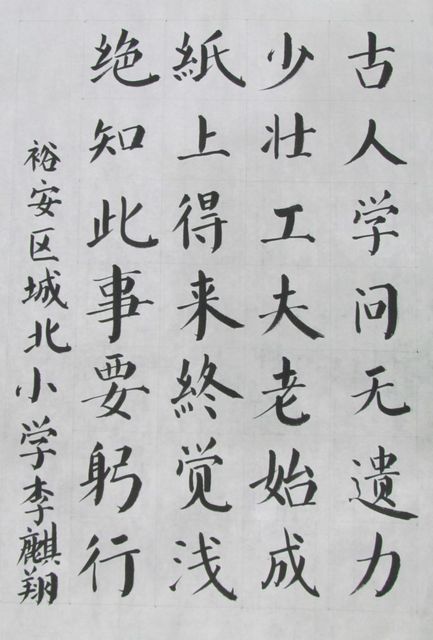 古人学问无遗力
少壮工夫老始成
紙上得来終觉浅
绝知此事要躬行
裕安区城北小学李麒翔